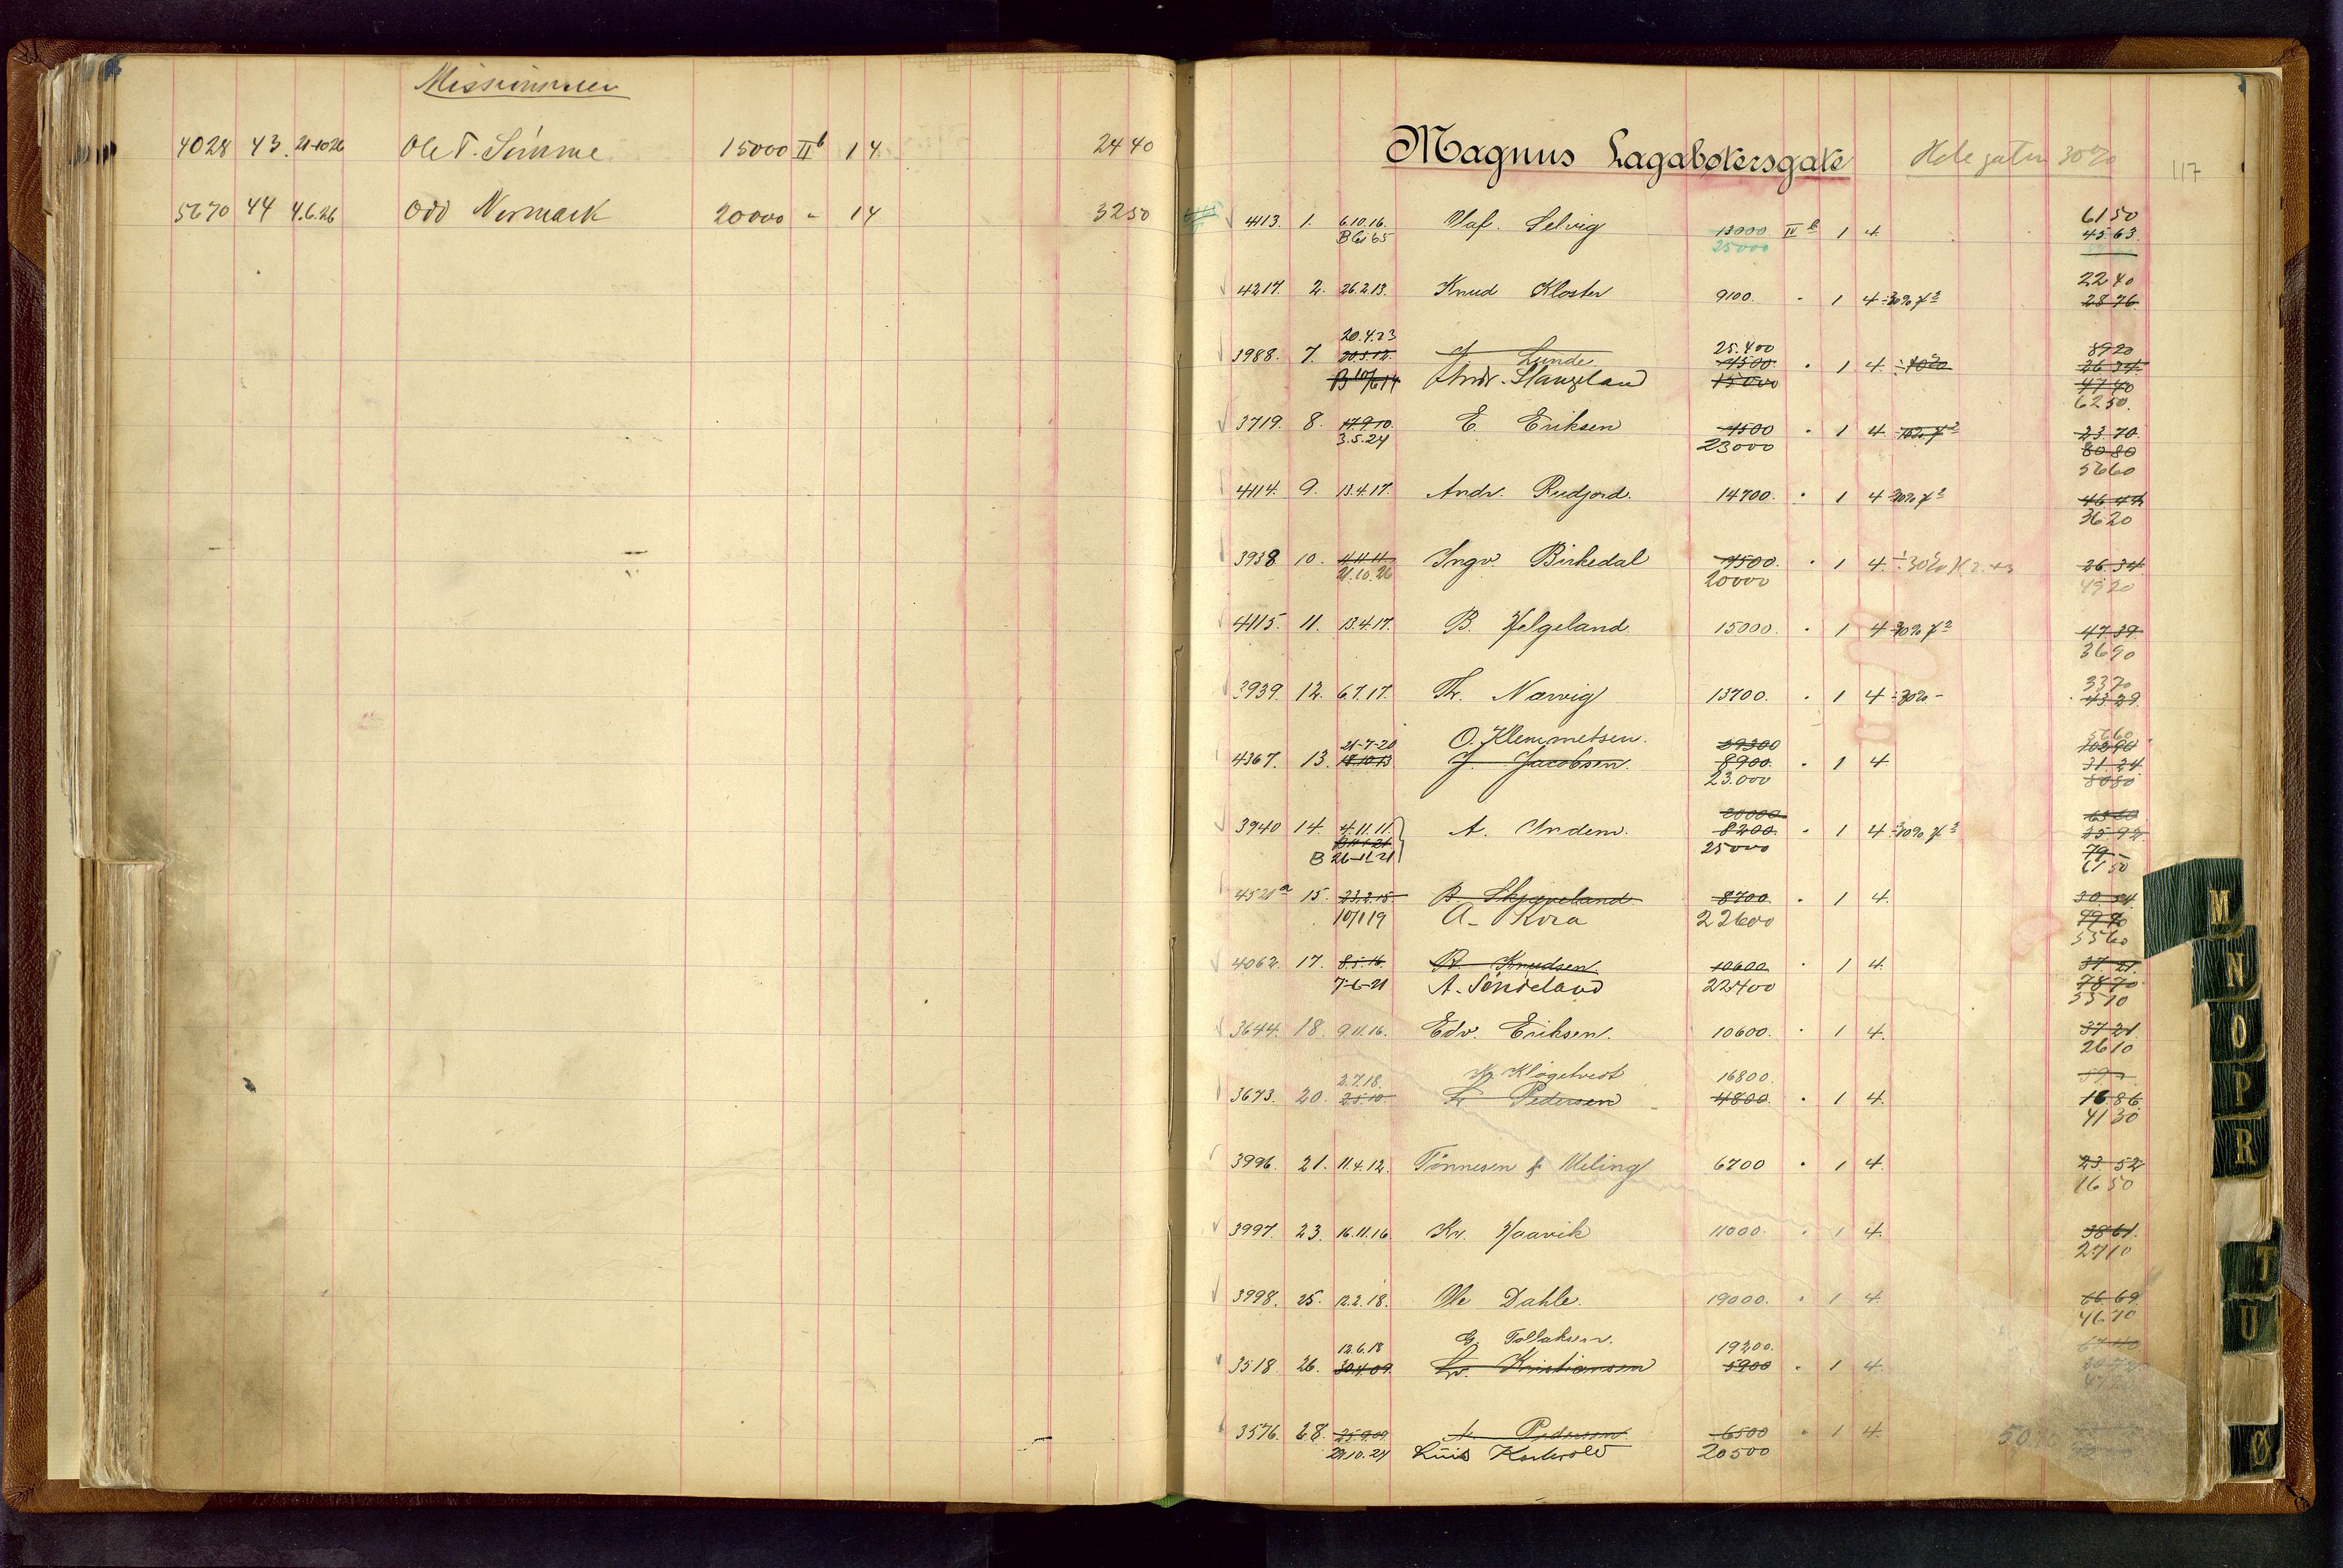 4028 43. 21-10 26 Ole T. Sømme 15000 IIb 1 4 24 40
5670 44 4.6.26 Odd Nermark 20000 - 1 4 32 50
Magnus Lagabøtersgate Hele gaten 30% 117
61 50
4113. 1. 6.10.16. Olaf. Selvig 13000 IV b 1 4. 45 63.
25000
22 40
4217. 2. 26.2.13. Knud Kloster 9100. " 1 4 -30% 28 76
20.4.23 25.400 89 20
3988. 7. 20.3.12. J. Lunde 7500. " 1 4. 26 34
B 10/6 14 Andr. Stangeland 15000 47 40
62 50.
3719. 8. 17.9.10. E. Eriksen 7500 " 1 4 23 70
3.5.24 23000 80 80
56 60
4114. 9. 13.4.17. Andr. Rudjord. 14700. " 1 4 -30% 46 44
36 20
3938 10. 4.11.11. Ingv. Birkedal 7500. " 1 4. -30% 26 34
21.10.26 20000 49 20
4115. 11. 13.4.17. B. Helgeland. 15000. " 1 4 -30% 47 39
36 90
33 70
3939. 12. 6.7.17. Th. Nærvig 13700. " 1 4 -30% - 43 29
21-7-20 O. Klemmetsen. 29300 56 60
4367. 13. 18.10.13 J. Jacobsen. 8900. " 1 4 31 24
23.000 80 80
20000
3940 14. 4.11.11. A. Undem. 8200. " 1 4 -30% 25 92
25000 79 -
B 26-11-21 61 50
4521a 15. 23.2.15. B. Skjæveland 8700. " 1 4. 30 54
10/1 19 A. Kvia 22600
55 60
4062. 17. 8.5.16. B. Knudsen 10600 " 1 4. 37 21.
7-6-21 A. Söndeland 22400 78 70
55 10
3644. 18. 9.11.16. Edv. Eriksen. 10600. " 1 4. 37 21
26 10
2.7.18. 16800. 59 -
3673. 20. 2.5.10. L. Pedersen 4800. " 1 4. 16 86
41 30
3996. 21. 11.4.12. Tönnesen & Meling 6700 " 1 4. 23 52
16 50
3997. 23. 16.11.16 Kr. Haavik 11000. " 1 4. 38 61.
27 10
3998. 25. 12.2.18. Ole Dahle. 19000. " 1 4. 66 69
46 70
12.6.18 G. Tollaksen. 19200. 67 40
3518. 26. 30.4.09. Kristiansen 5900 " 1 4.
3576. 28. 25.9.09 Pedersen 6500 " 1 4. 50
29.10.24 20500
M
N
O
P
R
T
U
Ø